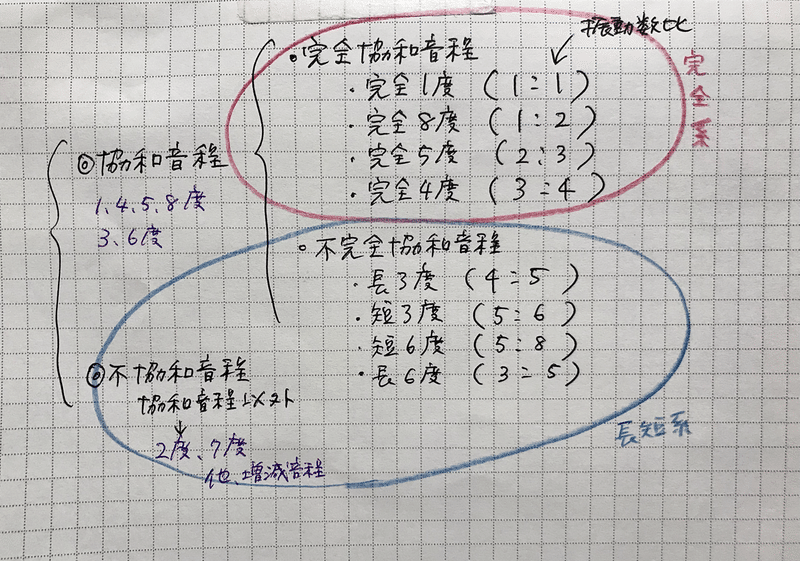 振動数比
・完全協和音程
・完全1度 (1:1)
・完全8度 (1:2)
・完全5度 (2:3)
・完全4度 (3:4)
完全系
◎協和音程
1、4、5、8度
3、6度
・不完全協和音程
・長3度 (4:5)
・短3度 (5:6)
・短6度 (5:8)
・長6度 (3:5)
◎不協和音程
協和音程以外
2度、7度
他、増減音程
長短系